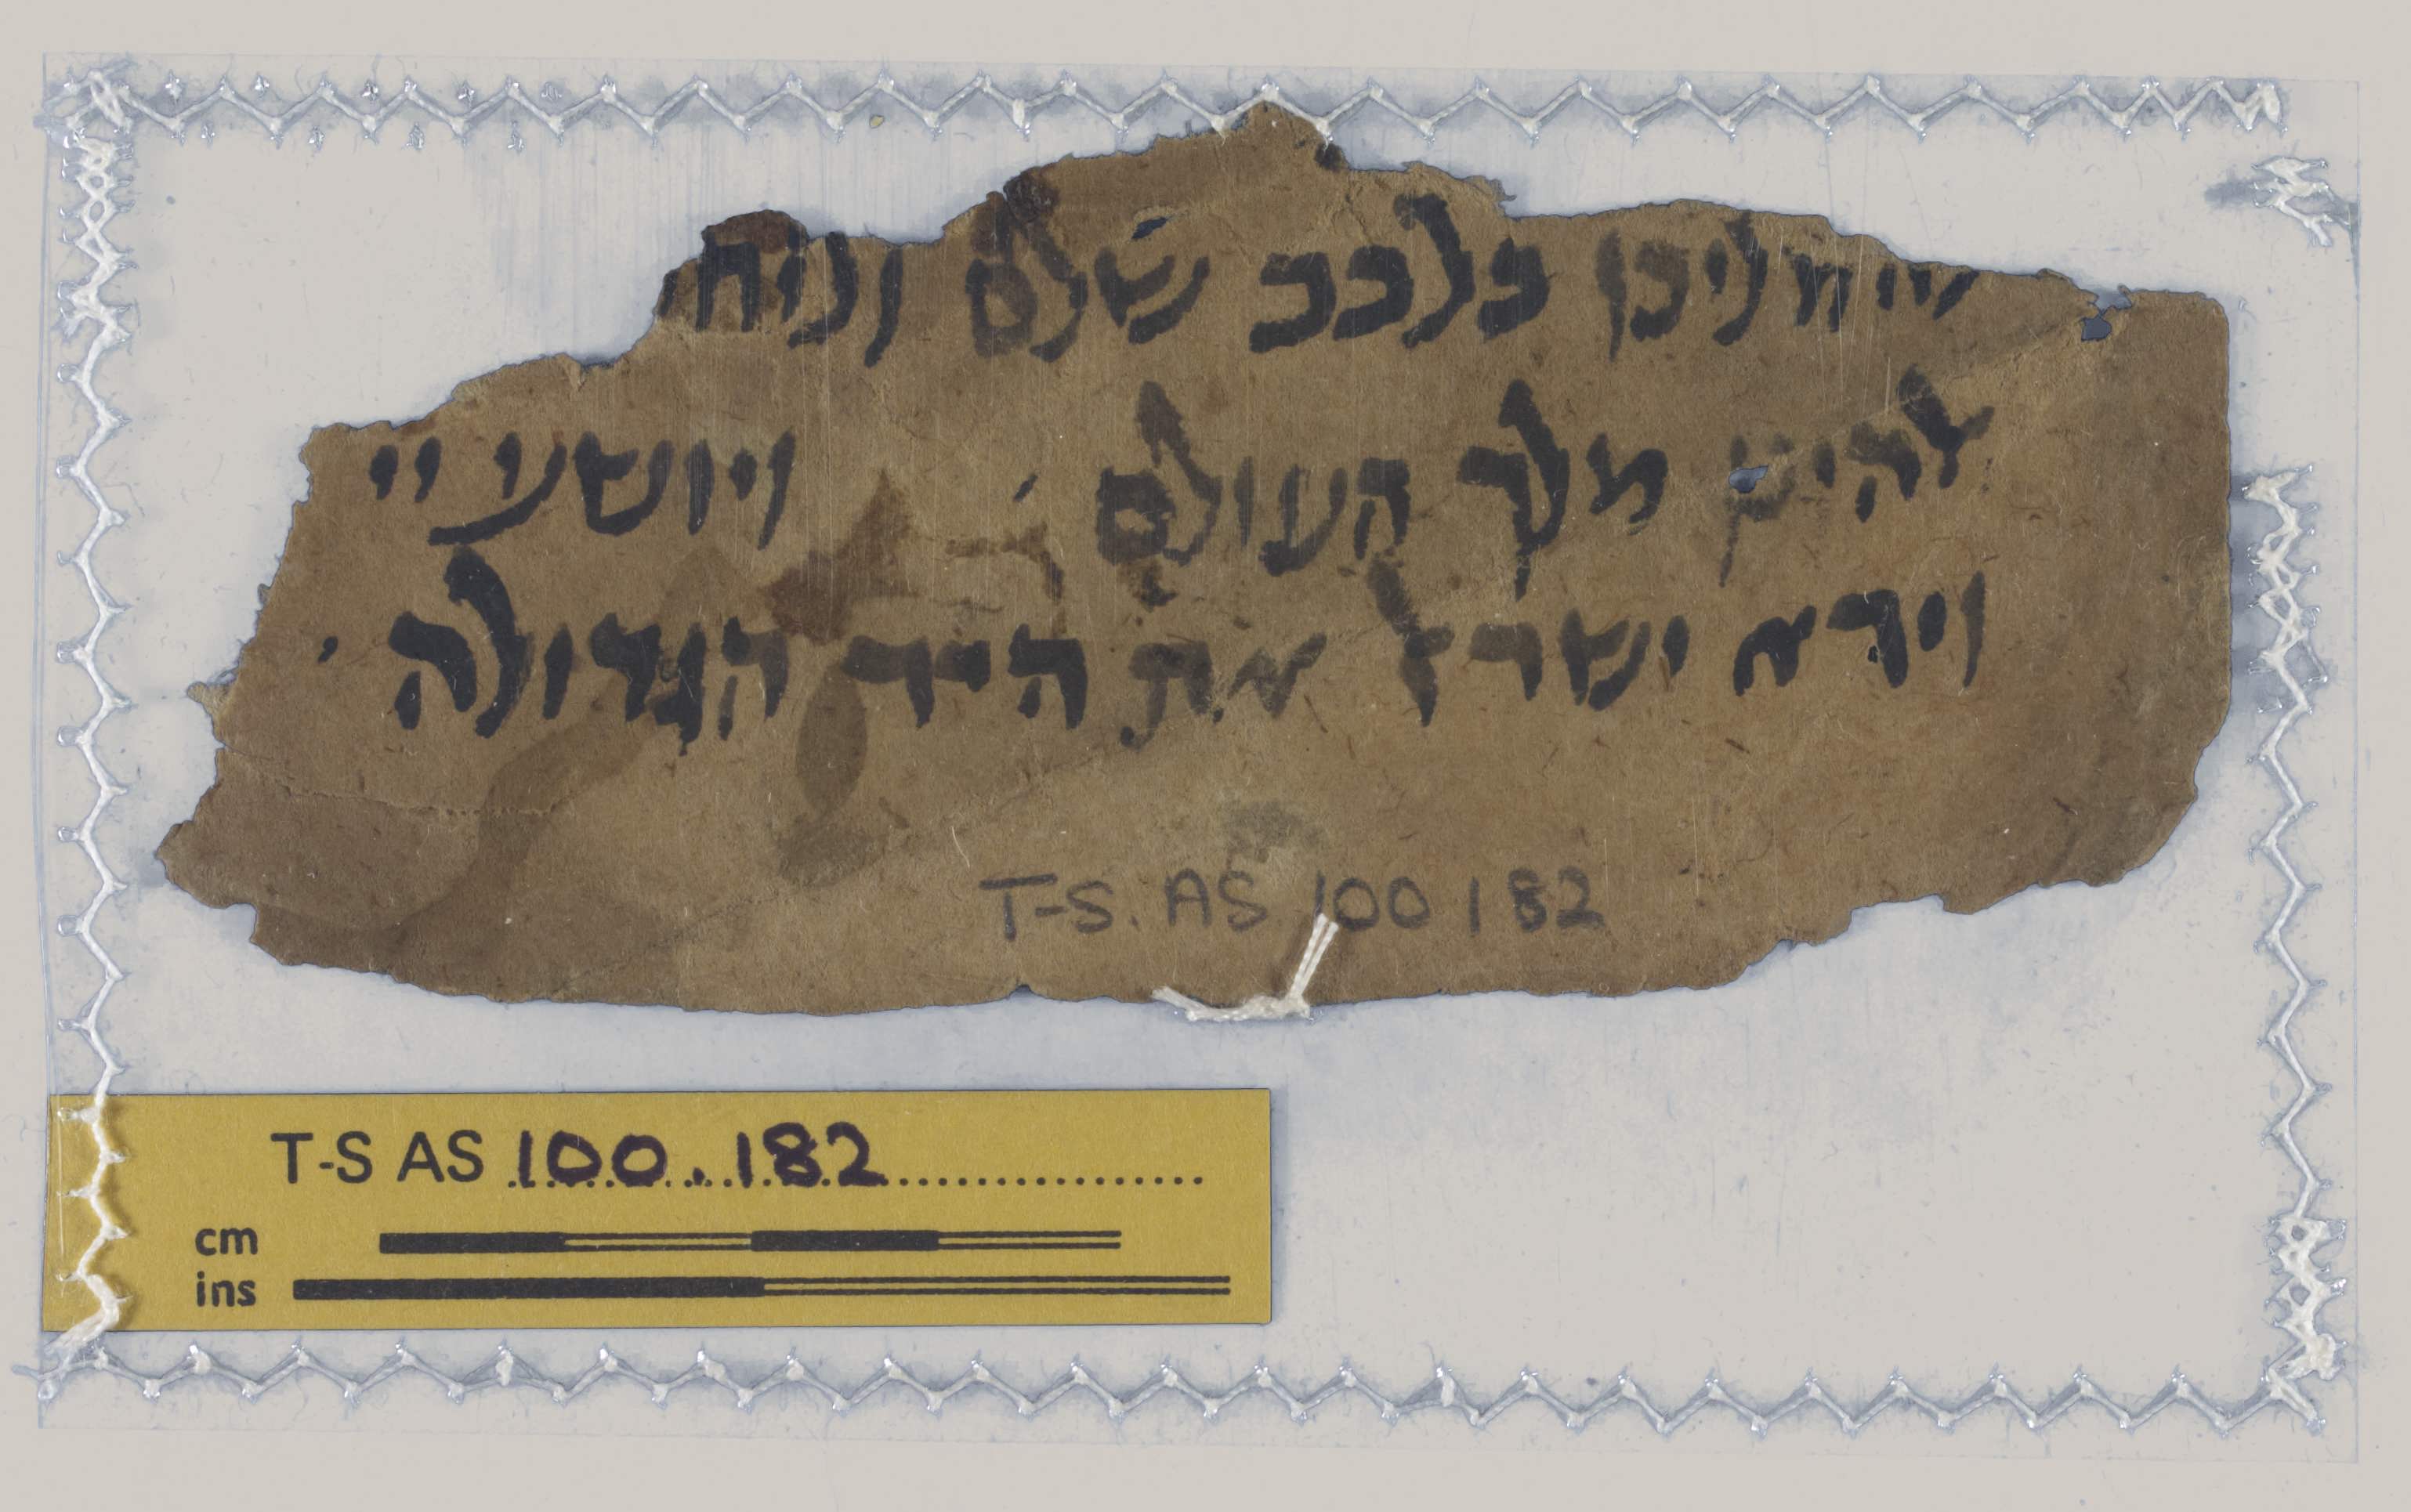 בלבב שלם
ﭏהינו מלך העולם ׳ ויושע יי
וירא ישרﭏ את היד הגדולה ׳
T-S. AS 100 182
T-S AS 100.182
cm
ins